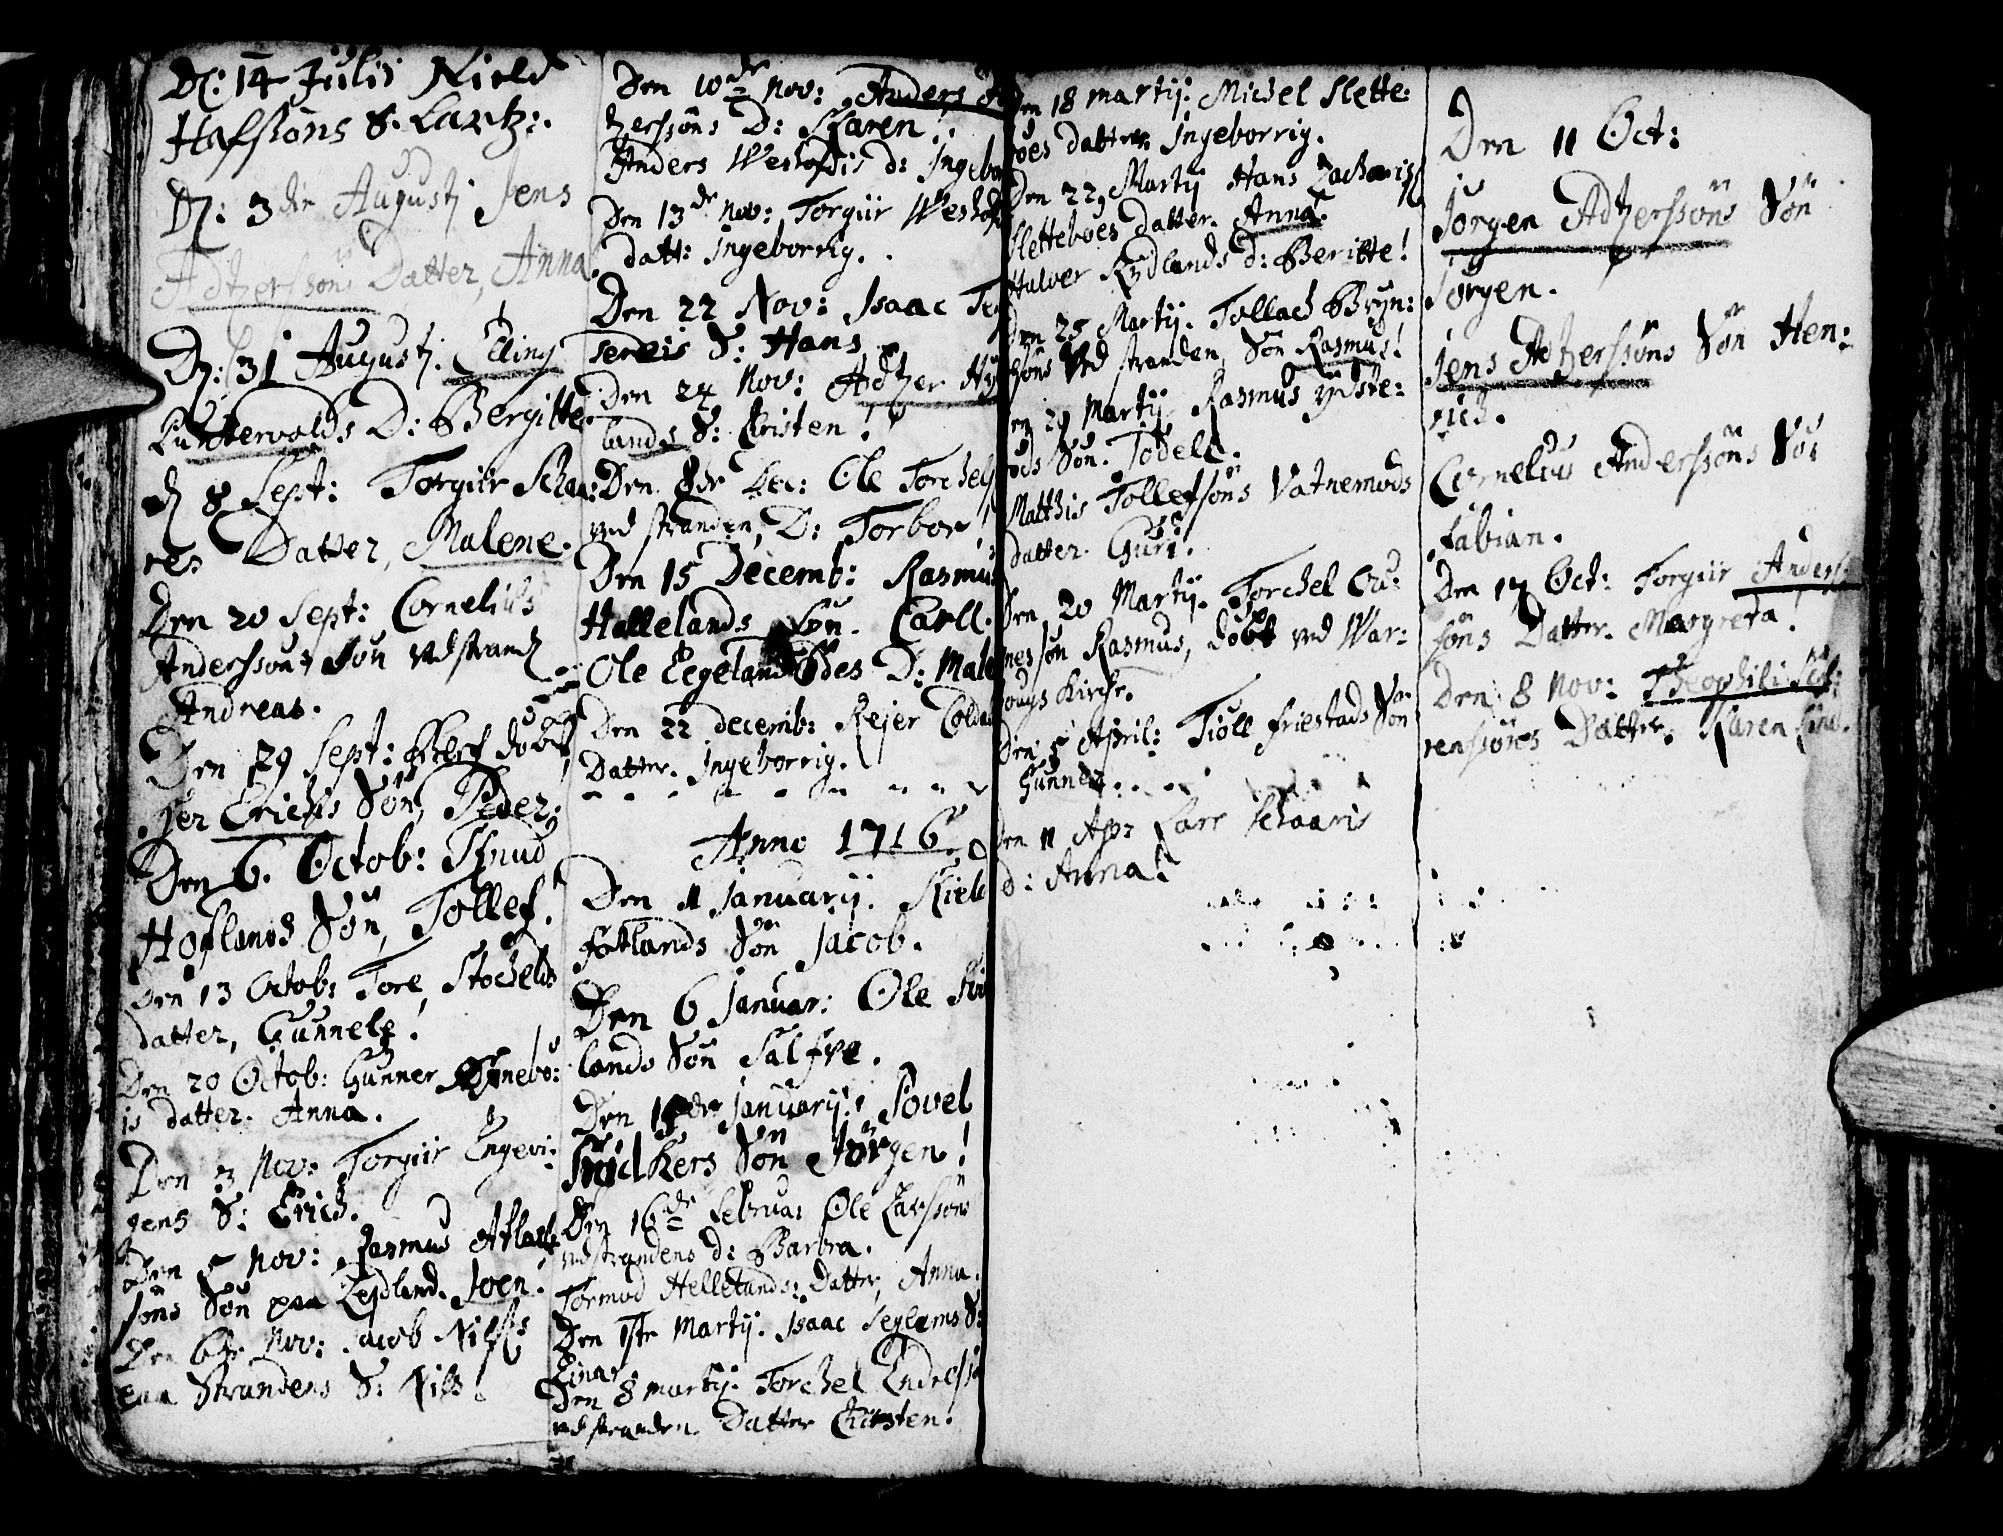 D: 14 Julij Niels
Hafssöns S. Lartz:.
D: 3die Augustj Jens
Adtzerssöns Datter, Anna
D: 31 Augustj. Elling
Lundervolds D: Bergitte
d 8 Sept: Torgiir Schaa:
res Datter, Malene.
Den 20 Sept: Cornelius
Anderssöns Sön vdstrand
Andreas.
Den 29 Sept: döbt
Per Erichs Sön, Peder,
Den 6. Octob: Knud
Hoflands Sön, Tollef.
Den 13 Octob: Tore Stochelds
datter, Gunnele!
Den 20 Octob: Gunner
is datter. Anna.
Den 3 Nov: Torgiir Engevi:
gens S: Erich.
Den 5 Nov: Rasmus Aslach
söns Sön paa Joen.
Den 6te Nov: Jacob Nilss
paa Strandens S: Nils!
Den 10de Nov: Anders
tzerssöns D: Karen.
Anders d: Ingebor
Den 13de Nov: Torgiir
datt: Ingeborrig.
Den 22 Nov: Isaac Teg
S: Hans
Den 24 Nov: Adtzer
lands S: Christen!
Den 8de Dec: Ole Torchels
ved stranden, D: Torbor!
Den 15 Decemb: Rasmus
Hallelands Sön. Carll.
Ole D: Male
Den 22 decemb: Rejer
Datter. Ingeborrig.
Anno 1716.
Den 11 Januarij. Kield
fotlands Sön Jacob.
Den 6 Januar: Ole
lands Sön Salfve.
Den 15de Januarij: Povel
Snidkers Sön Jörgen!
Den 16de Februa: Ole Larssöns
vedstrandens d: Barbra.
Tormod Hellelands: Datter, Anna.
Den 1ste Martij. Isaac Seglems S:
Einar.
Den 8 martij. Torchel Endress
ved stranden. Datter Chirsten.
Den 18 martij. Michel Slette:
boes datter Ingeborrig.
Den 22, Martij Hans Zacharis
Sletteboes datter. Anna.
Halver Rydlands d: Beritte!
Den 25 Martij. Tollach Bryn:
söns Ved stranden, Sön Rasmus!
Den 29 Martij Rasmus ydste:
Sön.
Matthis Tollefsöns Vatnemods
datter. Guri.
Den 20 Martij. Torchel Ou:
nes sön Rasmus, döbt ved War:
hougs Kirche.
Den 5 April: Tiöll friestads Sön
Gunner.
Den 11 Ap: Lars Schaaris
d: Anna!
Den 11 Oct:
Jörgen Adtzerssöns Sön
Jörgen.
Jens Adtzerssöns Sön Hen:
rich.
Cornelius Anderssöns Sön
fabian.
Den 17 Oct: Torgiir Anders:
söns Datter. Margreta.
Den 8 Nov: Theophili Söf:
renssöns Datter. Karen